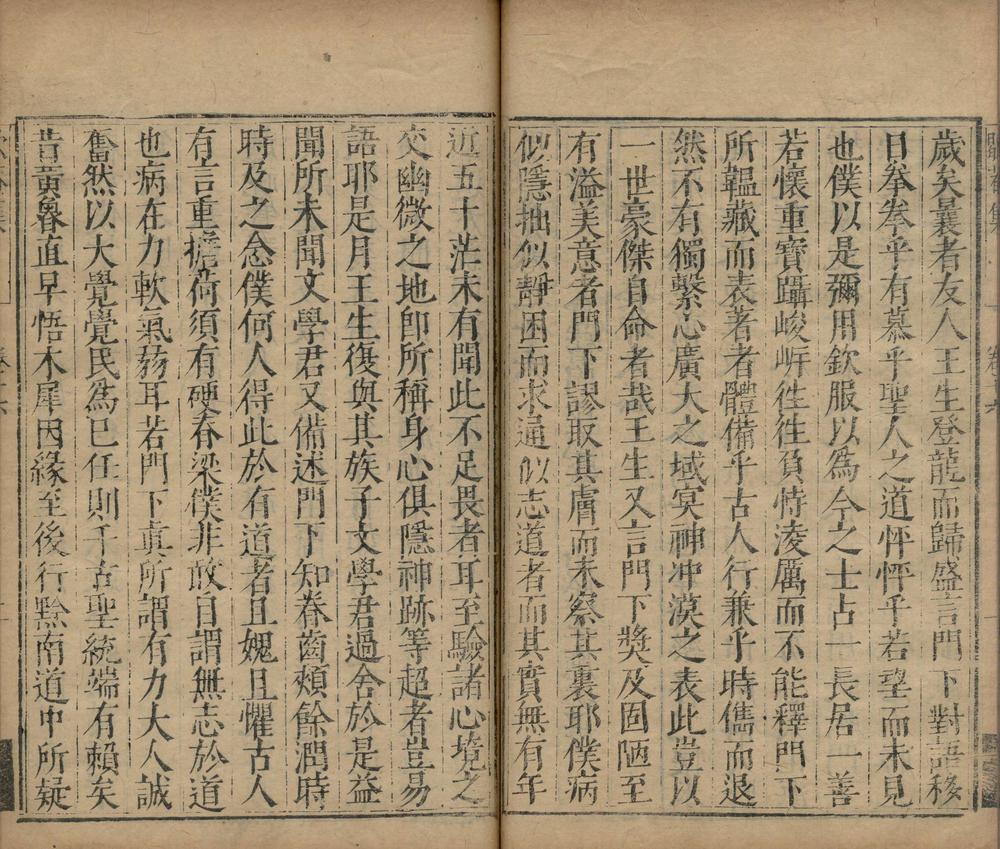 歲矣曩者友人王生登龍而歸盛言門下對語移
日拳拳乎有慕乎聖人之道怦怦乎若望而未見
也僕以是彌用欽服以爲今之士占一長居一善
若懷重寶躡峻岍徃徃負恃淩厲而不能釋門下
所韞藏而表著者體備乎古人行兼乎時儁而退
然不有獨繫心廣大之域冥神冲漠之表此豈以
一世豪傑自命者哉王生又言門下奬及固陋至
有溢美意者門下謬取其膚而未察其裏耶僕病
似隱拙似靜困而求通似志道者而其實無有年
近五十茫未有聞此不足畏者耳至驗諸心境之
交幽微之地卽所稱身心俱隱神跡等超者豈易
語耶是月王生復與其族子文學君過舍於是益
聞所未聞文學君又備述門下知眷齒頰餘潤時
時及之念僕何人得此於有道者且媿且懼古人
有言重擔荷須有硬脊梁僕非敢自謂無志於道
也病在力軟氣蒻耳若門下眞所謂有力大人誠
奮然以大覺覺民爲已任則千古聖統端有賴矣
昔黃魯直早悟木犀因緣至後行黔南道中所疑